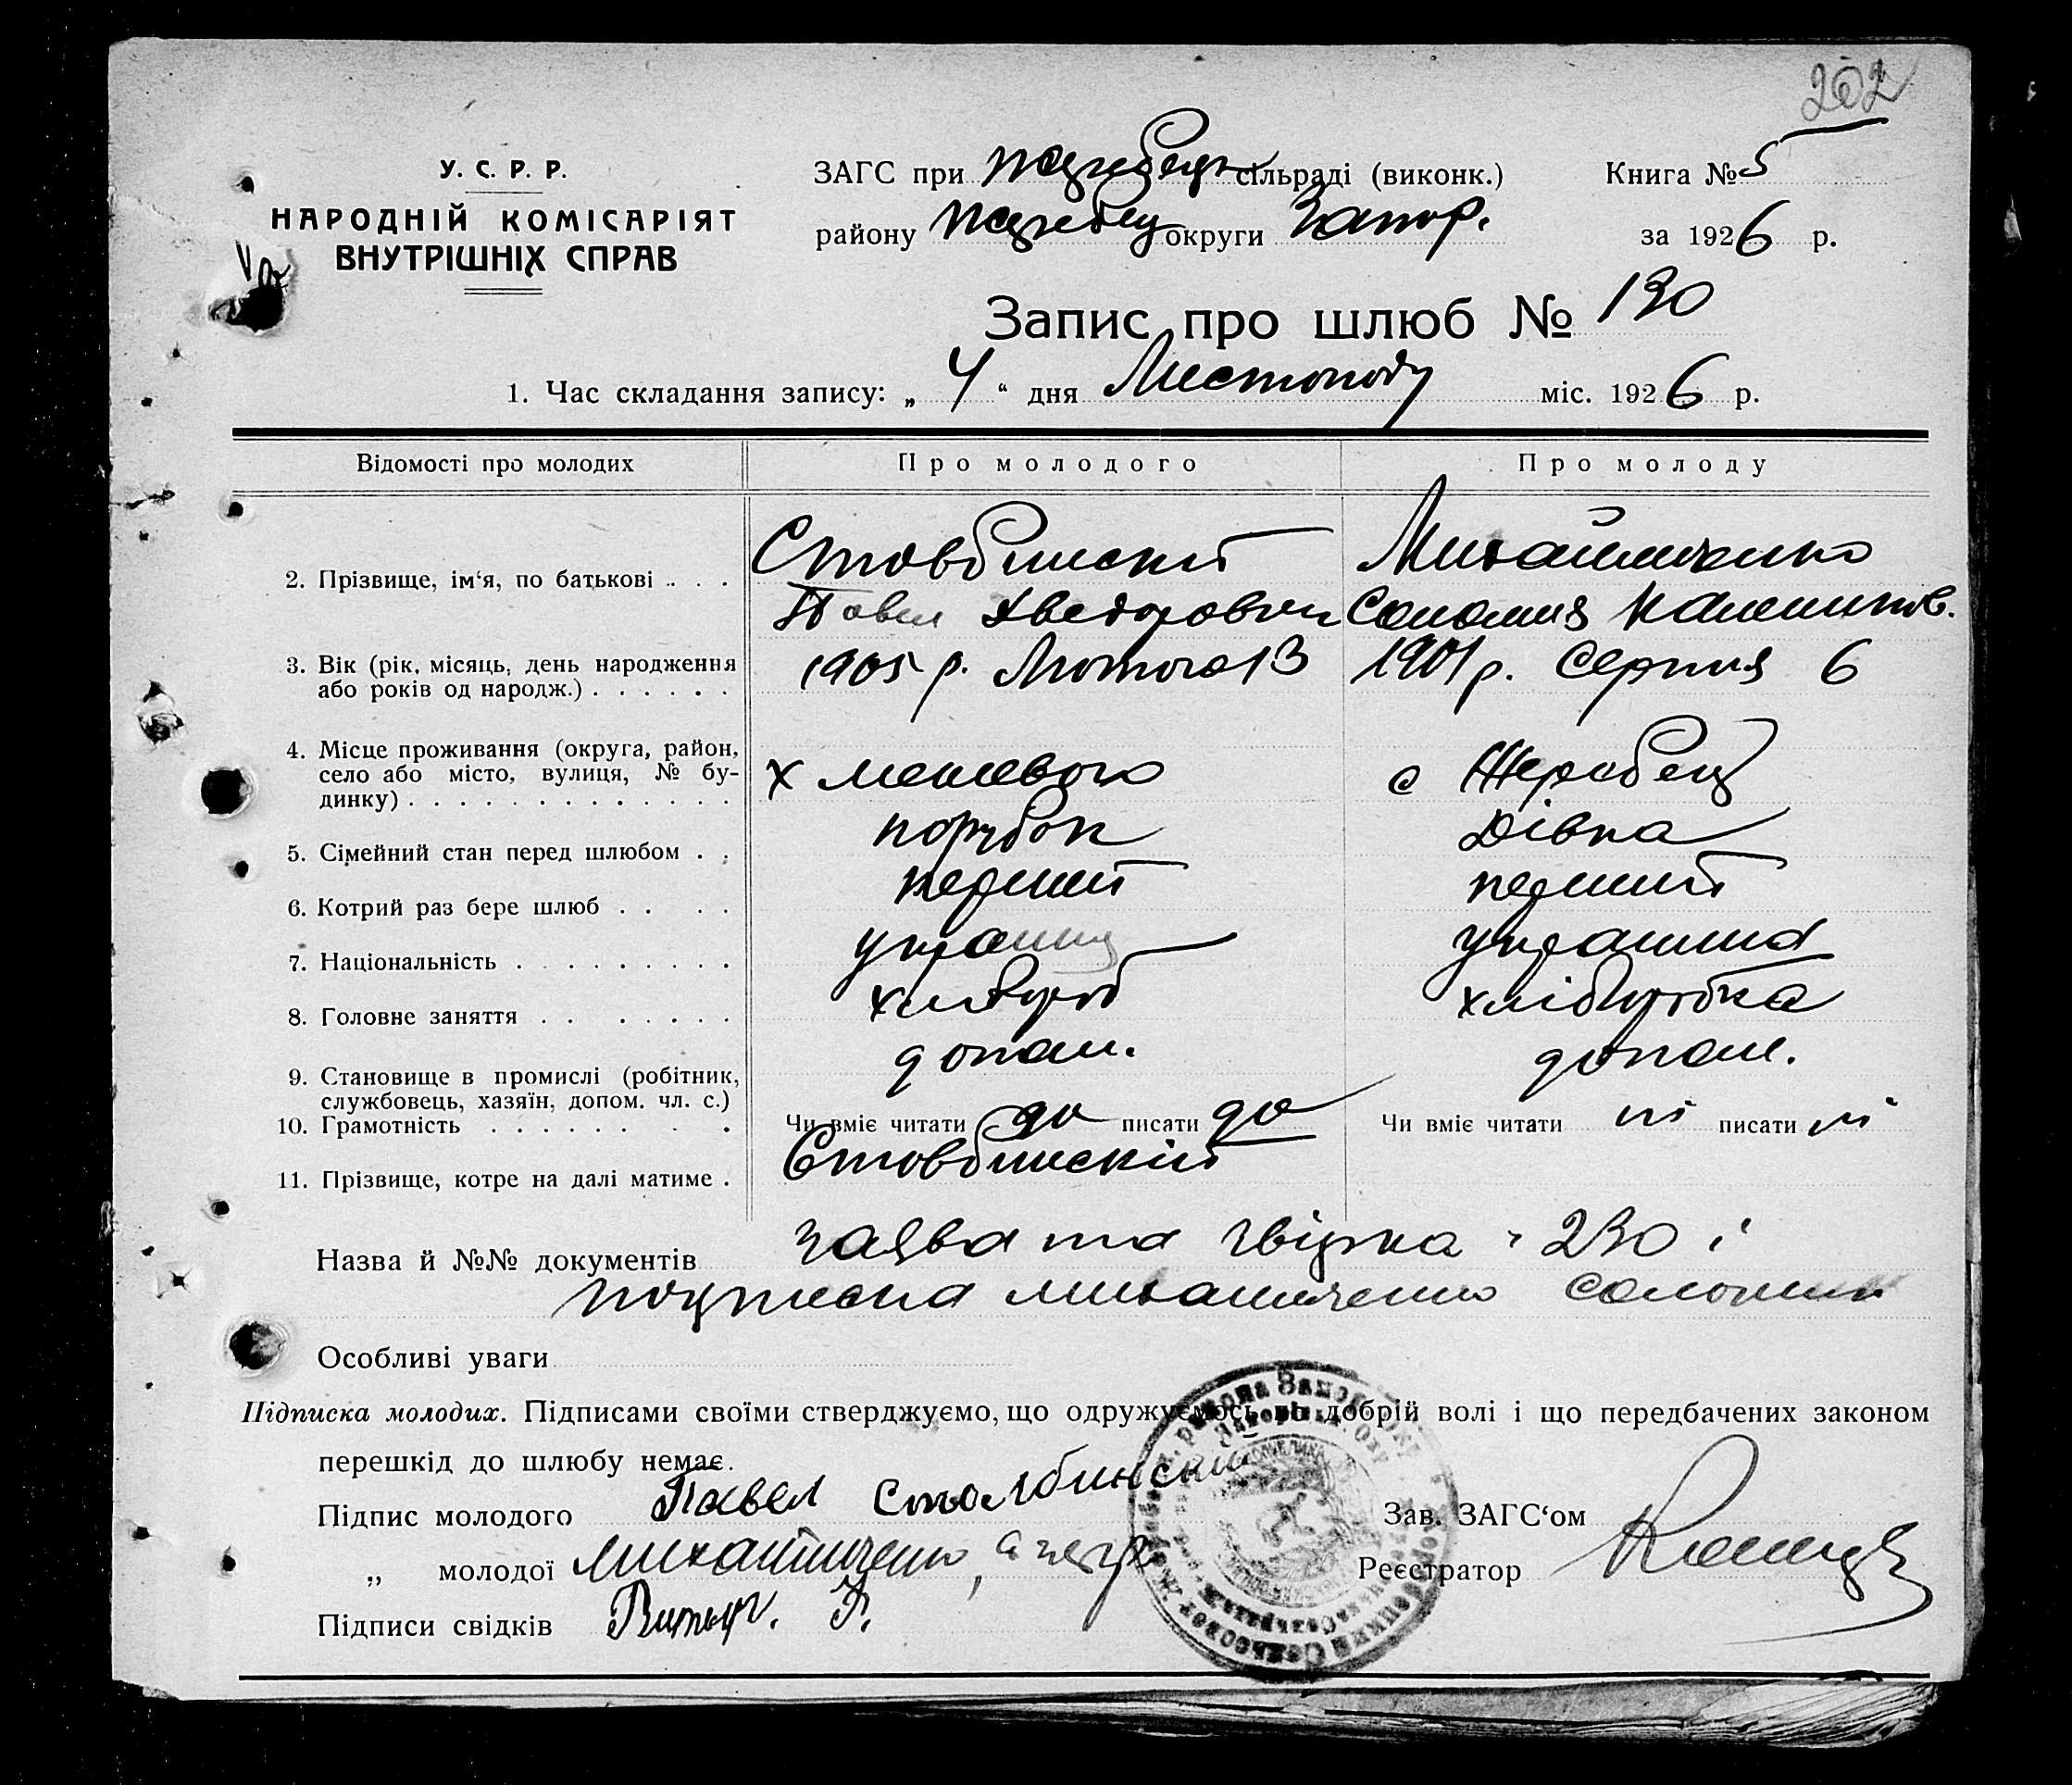 202
У. С. Р. Р.
НАРОДНІЙ КОМІСАРІЯТ
ВНУТРІШНІХ СПРАВ
ЗАГС при Жеребецк сільраді (виконк.)
району Жеребец округи Запор.
Книга № 5
за 1926 р.
Запис про шлюб № 130
1. Час складання запису: „ 4 “ дня Листопаду міс. 1926 р.
Відомості про молодих Про молодого Про молоду
2. Прізвище, ім‘я, по батькові Стовбинский Михайличенко
Павел Хведорович Соломия
3. Вік (рік, місяць, день народження 1905 р. Лютого 13 1901 р. Серпня 6
або років од народж.)
4. Місце проживання (округа, район,
село або місто, вулиця, № бу-
динку)
х с Жеребец
5. Сімейний стан перед шлюбом парубок дівка
6. Котрий раз бере шлюб перший перший
7. Національність украинц украинка
8. Головне заняття хлибороб хліборобка
9. Становище в промислі (робітник, допом. допом.
службовець, хазяїн, допом. чл. с.)
10. Грамотність Чи вміє читати да писати да Чи вміє читати ні писати ні
11. Прізвище, котре на далі матиме Стовбинский
Назва й №№ документів заява та звірка 230 і
подписка михайличенко соломии
Особливі уваги
Підписка молодих. Підписами своїми стверджуємо, що одружуємось по добрій волі і що передбачених законом
перешкід до шлюбу немає.
Підпис молодого Павел Столбинский
„ молодої Михайличенко
Підписи свідків
Зав. ЗАГС‘ом
Реєстратор